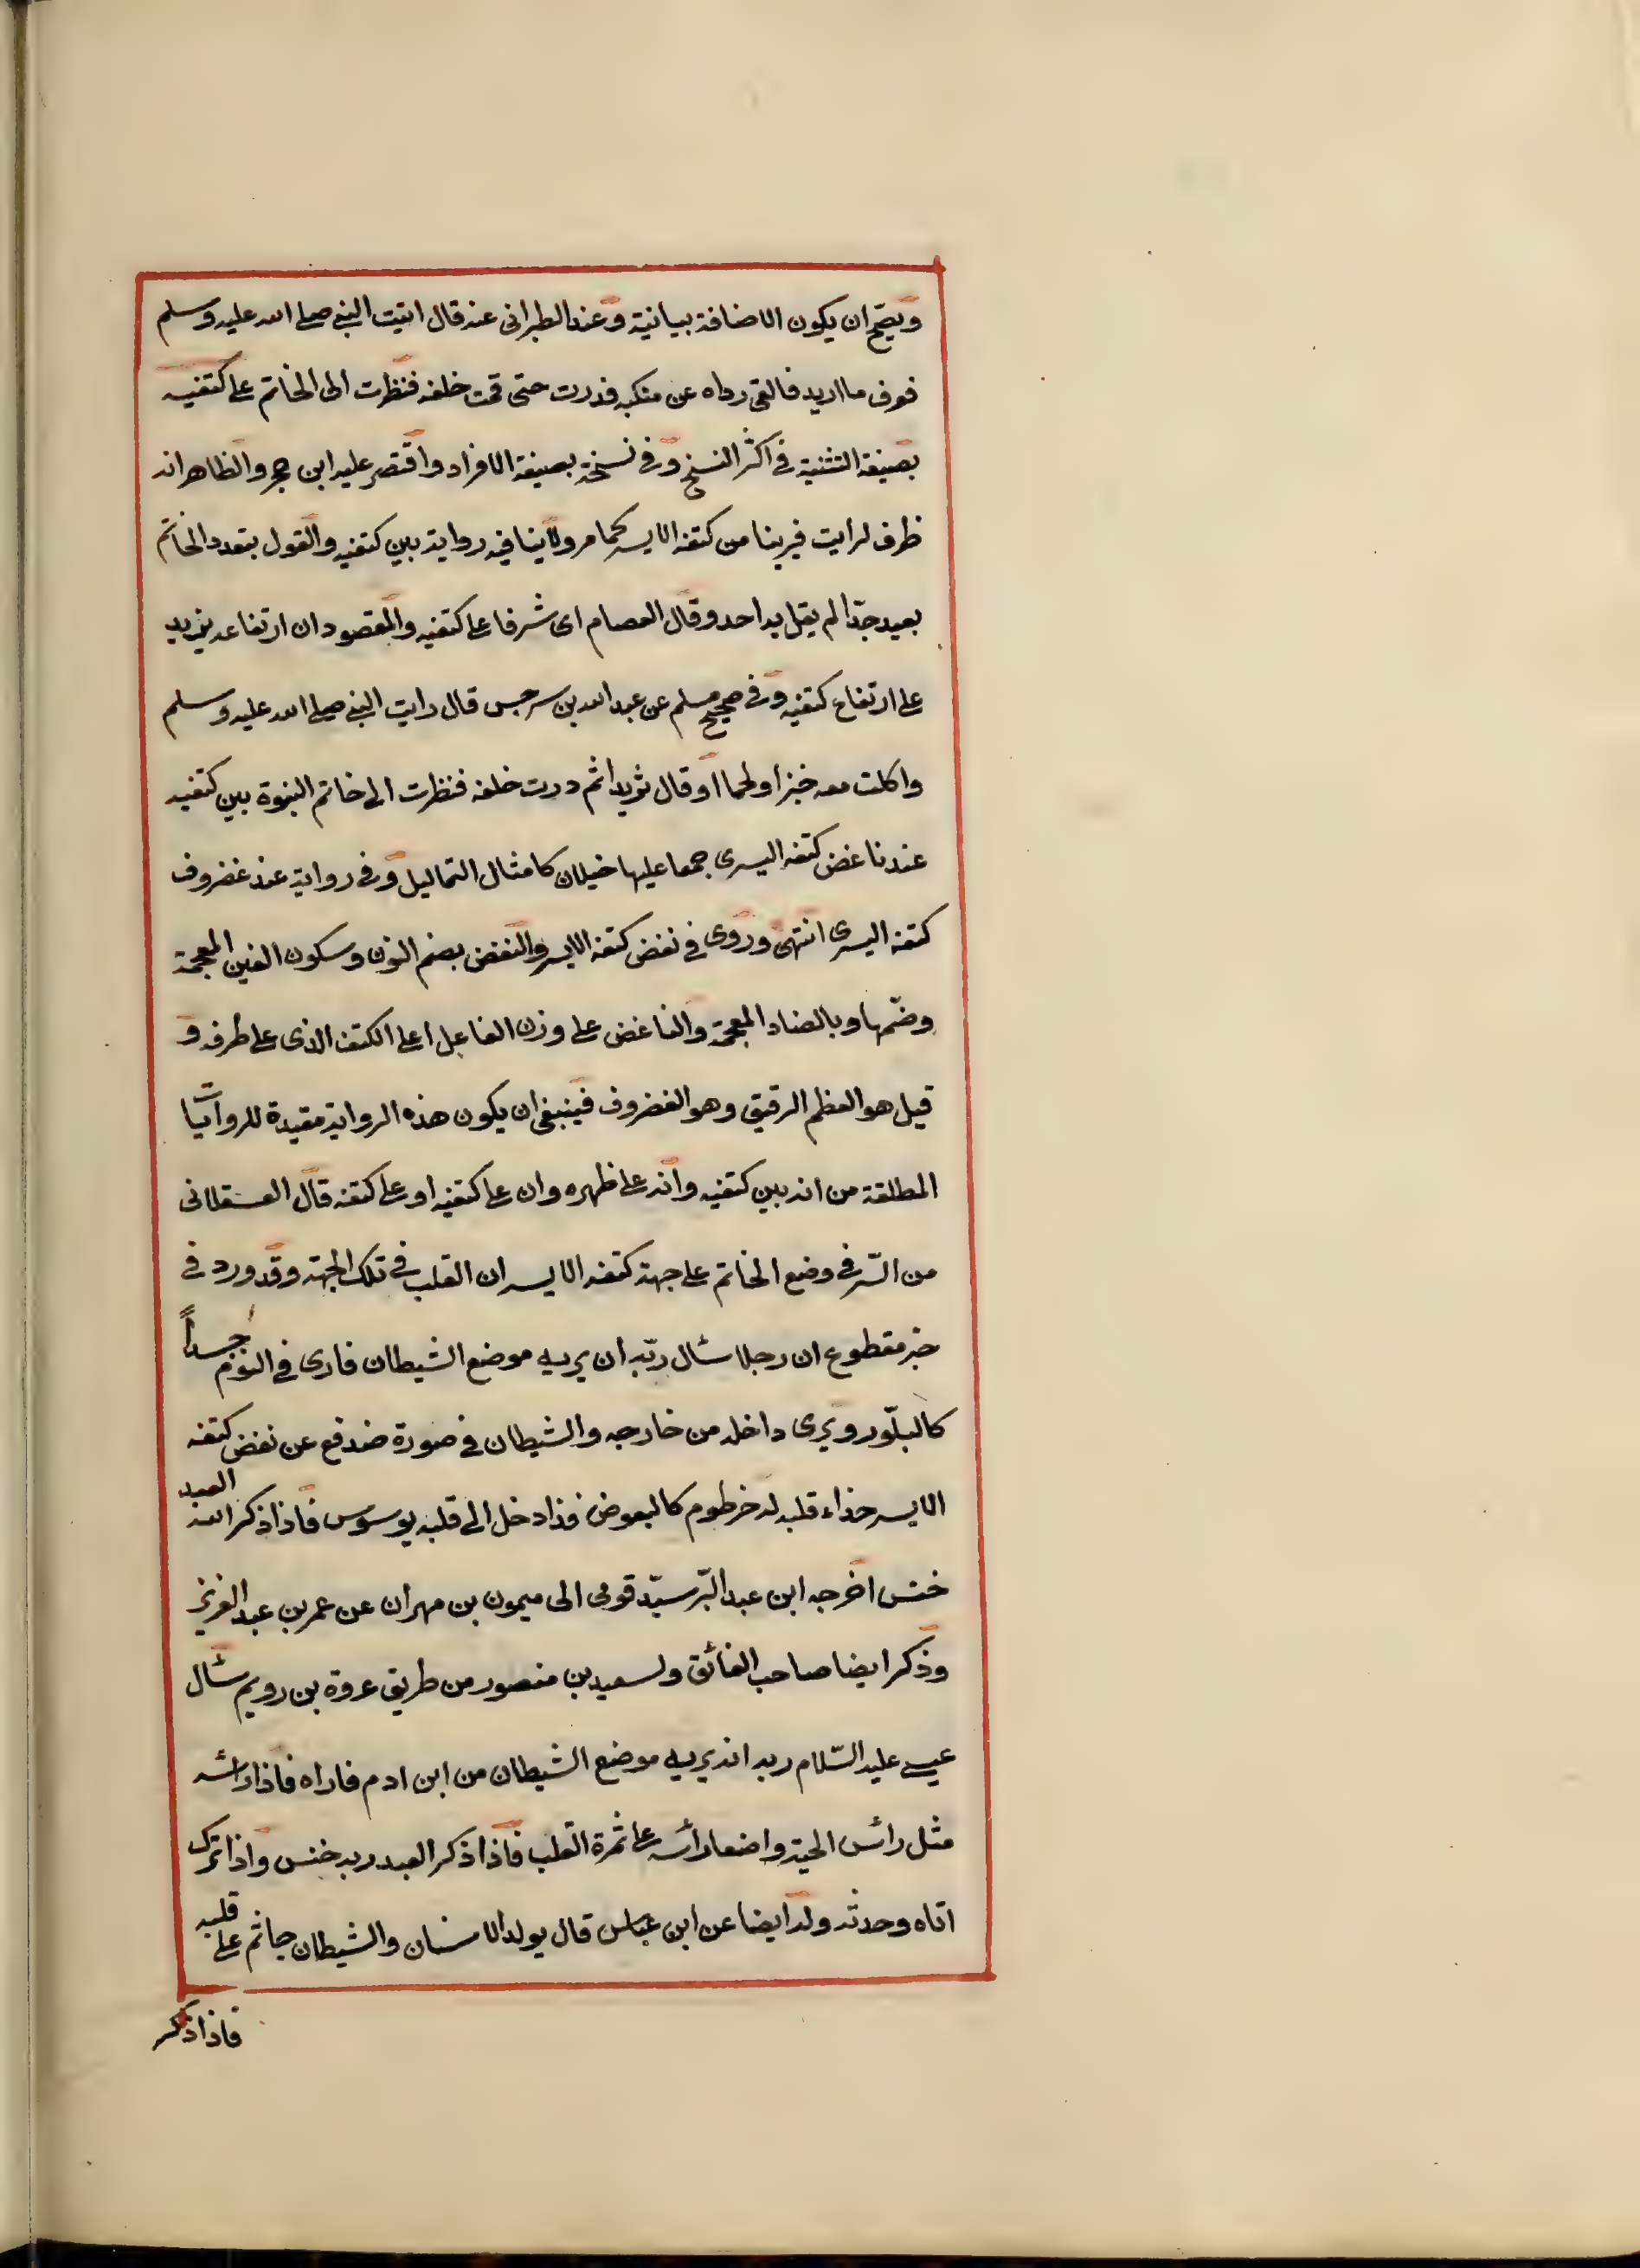 ويصح ان يكون الاضافة بيانية وعند الطبرانى عنه قال اتيت النبى صلى الله عليه وسلم
فعرف ما اريد فالقى رداه عن منكبه فدرت حتى قمت خلفه فنظرت الى الخاتم على كتفيه
بصيغة التثنية فى اكثر النسخ وفى نسخة بصيغة الافراد واقتصر عليه ابن حجر والظاهر انه
ظرف لرايت قريبا من كتفه الايسر كما مر ولا ينافيه رواية بين كتفيه والقول بتعدد الخاتم
بعيد جدّا لم يقل به احد وقال العصام اى مشرفا على كتفيه والمقصود ان ارتفاعه يزيد
على ارتفاع كتفيه وفى صحيح مسلم عن عبد الله بن سرجس قال رايت النبى صلى الله عليه وسلم
واكلت معه خبزا ولحما او قال ثريدا ثم درت خلفه فنظرت الى خاتم النبوة بين كتفيه
عند ناغض كتفه اليسرى جمعا عليها خيلان كامثال الثماليل وفى رواية عند غضروف
كتفه اليسرى انتهى وروى فى نغض كتفه الايسر والنغض بضم النون وسكون الغين المعجمة
وضمّها وبالضاد المعجمة والناغض على وزن الفاعل اعلى الكتف الذى على طرفه و
قيل هو العظم الرقيق وهو الغضروف فينبغى ان يكون هذه الرواية مقيدة للروايات
المطلقة من انه بين كتفيه وانه على ظهره وان على كتفيه او على كتفه قال العسقلانى
من السّر فى وضع الخاتم على جهة كتفه الايسر ان القلب فى تلك الجهة وقد ورد فى
خبر مقطوع ان رجلا سئال ربّه ان يريه موضع الشيطان فارى فى النوم جسداً
كالبلّور ويرى داخله من خارجه والشيطان فى صورة ضدفع عن نغض كتفه
الايسر حذاء قلبه له خرطوم كالبعوض فذا دخل الى قلبه يوسوس فاذا ذكر الله العبد
خنس اخرجه ابن عبد البّر سبّد قوى الى ميمون بن مهران عن عمر بن عبد العزيز
وذكر ايضا صاحب الفائق ولسعيد بن منصور من طريق عروة بن رويم سئال
عيسى عليه السّلام ربه انه يريه موضع الشيطان من ابن ادم فاراه فاذا رائسه
مثل رائس الحية واضعا رائسه على ثمرة القلب فاذا ذكر العبد ربه خنس واذا ترك
اتاه وحدثه وله ايضا عن ابن عباس قال يولد الانسان والشيطان جاثم على قلبه
فاذا ذكر